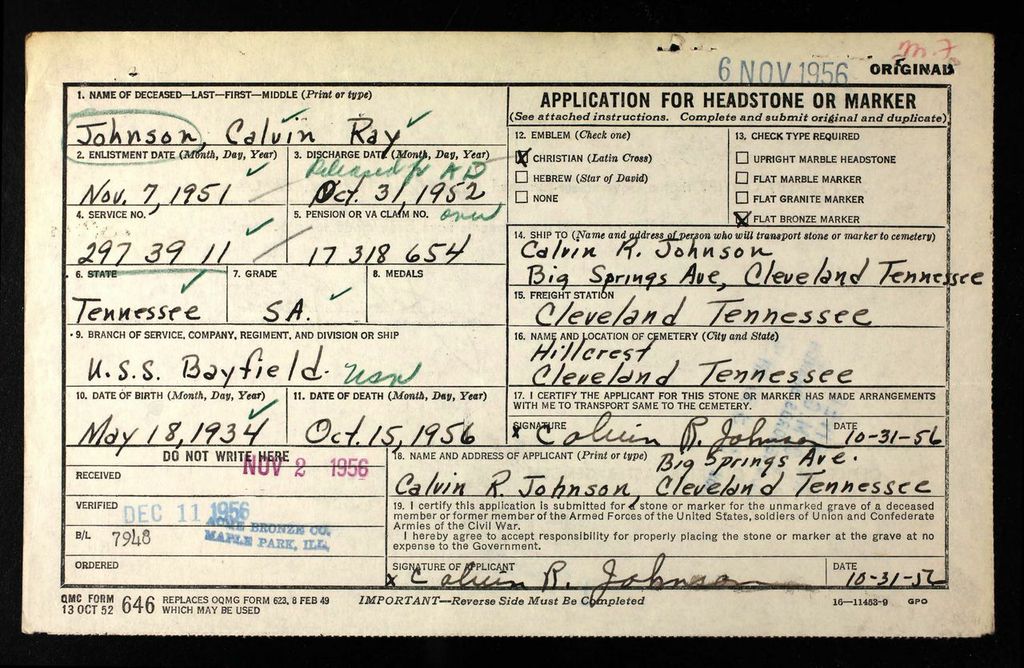 m.F.
6 NOV 1956 ORIGINAL
1. NAME OF DECEASED—LAST—FIRST—MIDDLE (Print or type)
Johnson, Calvin Ray
2. ENLISTMENT DATE (Month, Day, Year)
Nov. 7, 1951
3. DISCHARGE DATE (Month, Day, Year)
Released fr AD
Oct. 31, 1952
4. SERVICE NO.
297 39 11
5. PENSION OR VA CLAIM NO.
over
17 318 654
6. STATE
Tennessee
7. GRADE
SA.
8. MEDALS
9. BRANCH OF SERVICE, COMPANY, REGIMENT, AND DIVISION OR SHIP
U.S.S. Bayfield. usn
10. DATE OF BIRTH (Month, Day, Year)
May 18, 1934
11. DATE OF DEATH (Month, Day, Year)
Oct. 15, 1956
APPLICATION FOR HEADSTONE OR MARKER
(See attached instructions. Complete and submit original and duplicate)
12. EMBLEM (Check one)
X CHRISTIAN (Latin Cross)
HEBREW (Star of David)
NONE
13. CHECK TYPE REQUIRED
UPRIGHT MARBLE HEADSTONE
FLAT MARBLE MARKER
FLAT GRANITE MARKER
X FLAT BRONZE MARKER
14. SHIP TO (Name and address of person who will transport stone or marker to cemetery)
Calvin R. Johnson
Big Springs Ave, Cleveland Tennessee
15. FREIGHT STATION
Cleveland Tennessee
16. NAME AND LOCATION OF CEMETERY (City and State)
Hillcrest
Cleveland Tennessee
17. I CERTIFY THE APPLICANT FOR THIS STONE OR MARKER HAS MADE ARRANGEMENTS
WITH ME TO TRANSPORT SAME TO THE CEMETERY.
SIGNATURE
x Calvin R. Johnson
DATE
10-31-56
DO NOT WRITE HERE
NOV 2 1956
RECEIVED
VERIFIED
DEC 11 1956
ACME BRONZE CO.
MAPLE PARK, ILL.
B/L 7948
ORDERED
18. NAME AND ADDRESS OF APPLICANT (Print or type)
Big Springs Ave.
Calvin R. Johnson, Cleveland Tennessee
19. I certify this application is submitted for a stone or marker for the unmarked grave of a deceased
member or former member of the Armed Forces of the United States, soldiers of Union and Confederate
Armies of the Civil War.
I hereby agree to accept responsibility for properly placing the stone or marker at the grave at no
expense to the Government.
SIGNATURE OF APPLICANT
x Calvin R. Johnson
DATE
10-31-56
QMC FORM
13 OCT 52 646 REPLACES OQMG FORM 623, 8 FEB 49
WHICH MAY BE USED
IMPORTANT—Reverse Side Must Be Completed
16—11453-9 GPO